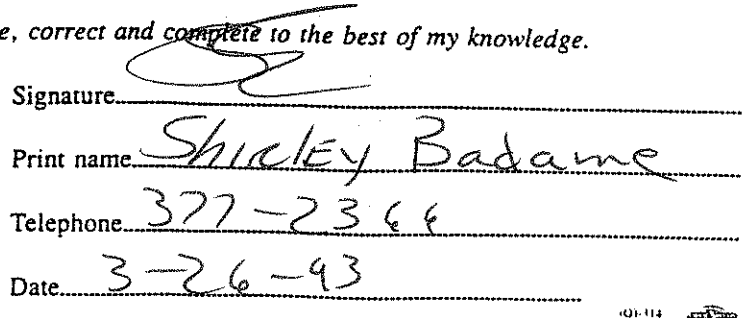 e, correct and complete to the best of my knowledge.
Signature
Print name Shirley Badame
Telephone 377-2366
Date 3-26-93